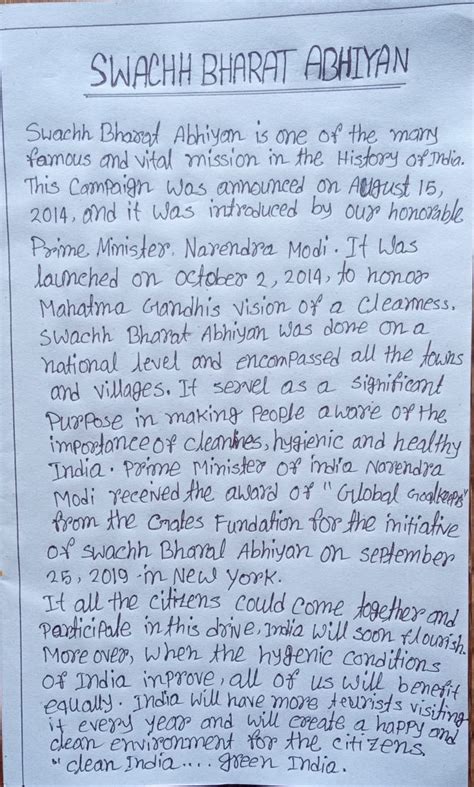 SWACHH BHARAT ABHIYAN
Swachh Bharat Abhiyan is one of the many
famous and vital mission in the History of India.
This Campaign was announced on August 15,
2014, and it was introduced by our honorable
Prime Minister, Narendra Modi. It was
launched on October 2, 2014, to honor
Mahatma Gandhis vision of a Clearness.
Swachh Bharat Abhiyan was done on a
national level and encompassed all the towns
and villages. It servel as a significant
Purpose in making People aware of the
importance of cleanlines, hygienic and healthy
India. Prime Minister of india Narendra
Modi received the award of "Global Goalkeeps"
from the Gates Fundation for the initiative
of swachh Bharal Abhiyan on september
25, 2019 in New York.
It all the citizens could come together and
Participale in this drive, India will soon flourish.
More over, when the hygenic conditions
of India improve, all of us will benefit
equally. India will have more teurists visiting
it every year and will create a happy and
clean environment for the citizens.
"clean India.... green India.